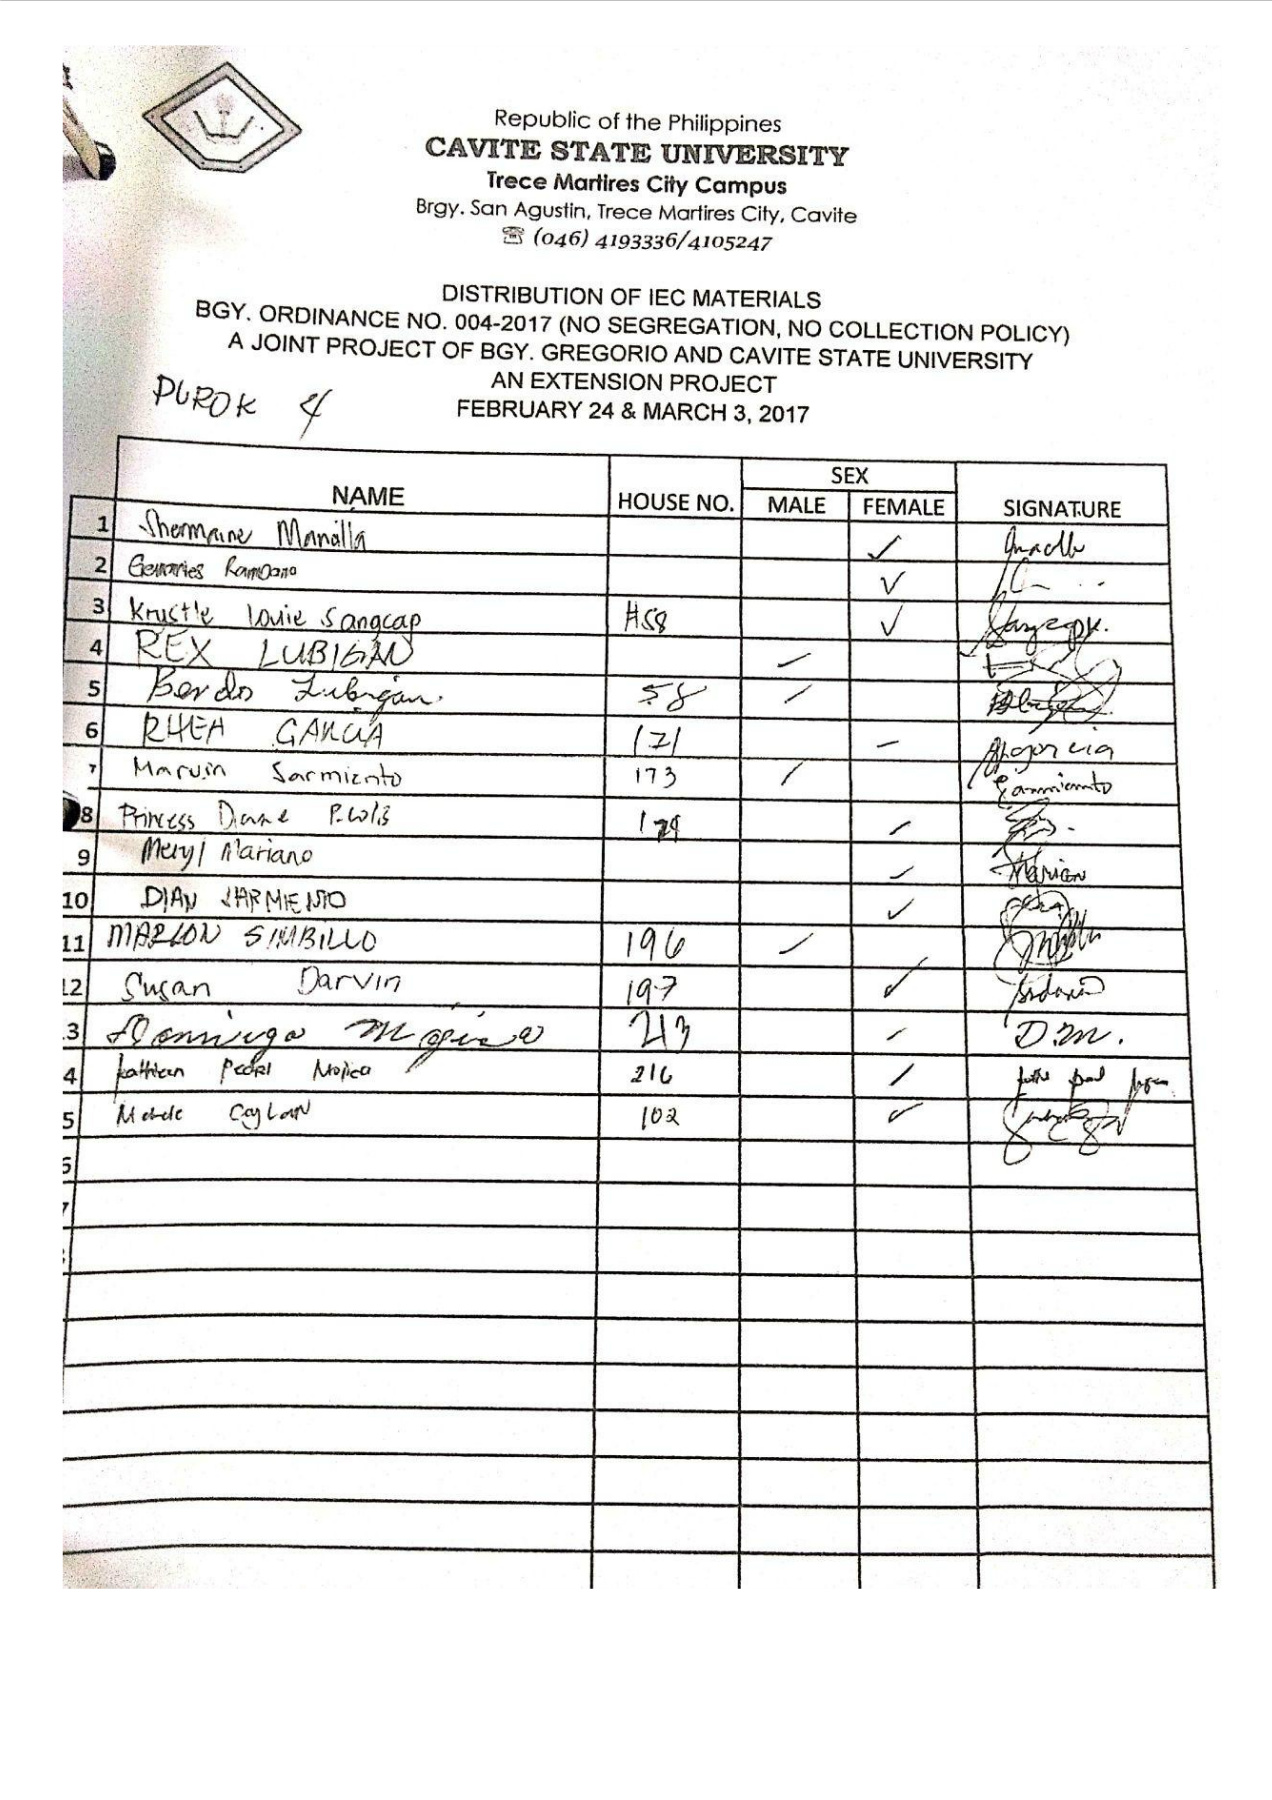 Republic of the Philippines
CAVITE STATE UNIVERSITY
Trece Martires City Campus
Brgy. San Agustin, Trece Martires City, Cavite
☏ (046) 4193336/4105247
DISTRIBUTION OF IEC MATERIALS
BGY. ORDINANCE NO. 004-2017 (NO SEGREGATION, NO COLLECTION POLICY)
A JOINT PROJECT OF BGY. GREGORIO AND CAVITE STATE UNIVERSITY
AN EXTENSION PROJECT
PUROK 4
FEBRUARY 24 & MARCH 3, 2017
NAME HOUSE NO. SEX SIGNATURE
MALE FEMALE
1 Shermaine Manalla ✓
2 ✓
3 Krystle Louie Sangcap H58 ✓
4 REX LUBIGAN /
5 Lubigan 58 /
6 RHEA GARCIA 171 /
7 Marvin Sarmiento 173 / Sarmiento
8 Princess Diane /
9 Meryl Mariano ✓
10 DIAN SARMIENTO ✓
11 MARLON SIMBILLO 196 /
12 Susan Darvin 197 ✓
3 Domingo Mojica 213 / D.M.
4 Kathleen Mojica 216 /
5 Caylan 102 ✓
6
7